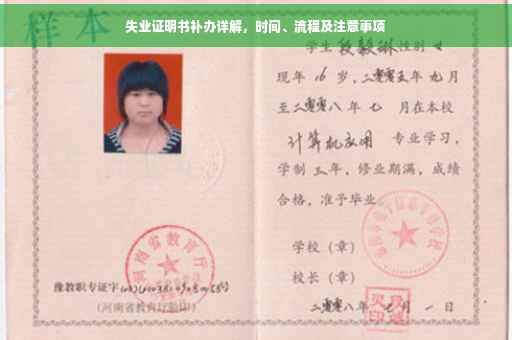 失业证明书补办详解，时间、流程及注意事项
样本
学生段毅琳性别女
现年16岁，二零零五年九月
至二零零八年七月在本校
计算机应用专业学习，
学制三年，修业期满，成绩
合格，准予毕业
学校（章）
校长（章）
二零零八年七月一日
河南省教育厅
豫教职专证字
（河南省教育厅验印）